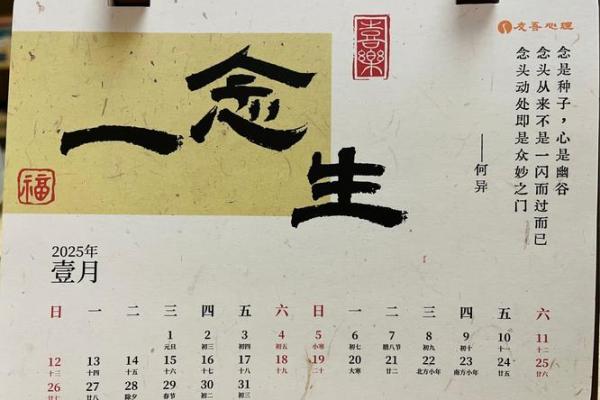 喜樂
友吾心理
一念生
福
念是种子，心是幽谷
念头从来不是一闪而过而已
念头动处即是众妙之门
——何异
2025年
壹月
日 一 二 三 四 五 六 日 一 二 三 四 五 六
1 2 3 4 5 6 7 8 9 10 11
元旦 初三 初四 初五 小寒 初七 腊八节 初九 初十 十一 十二
12 13 14 15 16 17 18 19 20 21 22 23 24 25
十三 十四 十五 十六 十七 十八 十九 二十 大寒 廿二 北方小年 南方小年 廿五 廿六
26 27 28 29 30 31
廿七 廿八 除夕 春节 初二 初三